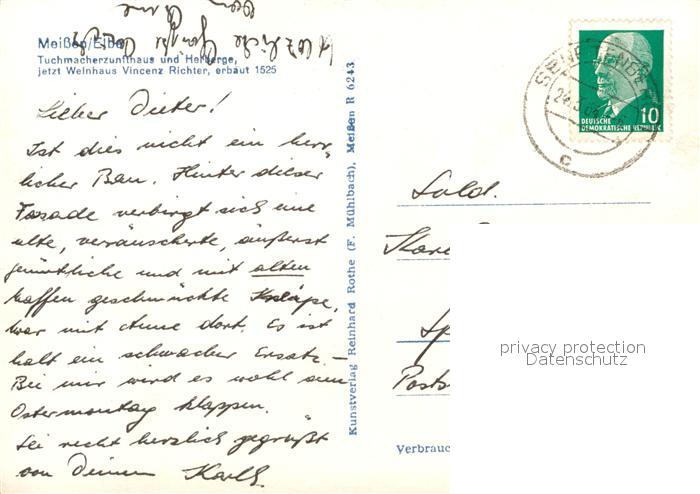 Meißen/Elbe
Tuchmacherzunfthaus und Herberge,
jetzt Weinhaus Vincenz Richter, erbaut 1525
Lieber Dieter!
Ist dies nicht ein herr-
licher Bau. Hinter dieser
Fassade verbirgt sich eine
alte, veräucherte, äußerst
gemütliche und mit alten
Waffen geschmückte Kneipe,
war mit Anne dort. Es ist
halt ein schwacher Ersatz. –
Bei mir wird es wohl am
Ostermontag klappen.
Sei recht herzlich gegrüßt
von Deinem
Kunstverlag Reinhard Rothe (F. Mühlbach), Meißen R 6243
DEUTSCHE
DEMOKRATISCHE REPUBLIK
10
24.3.64
c
Sold.
Posts
Verbrauc
privacy protection
Datenschutz